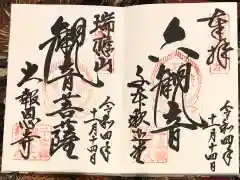 奉拝
六観音
令和四年
十一月十四日
瑞應山
観音菩薩
大報恩寺
令和四年
十一月十四日